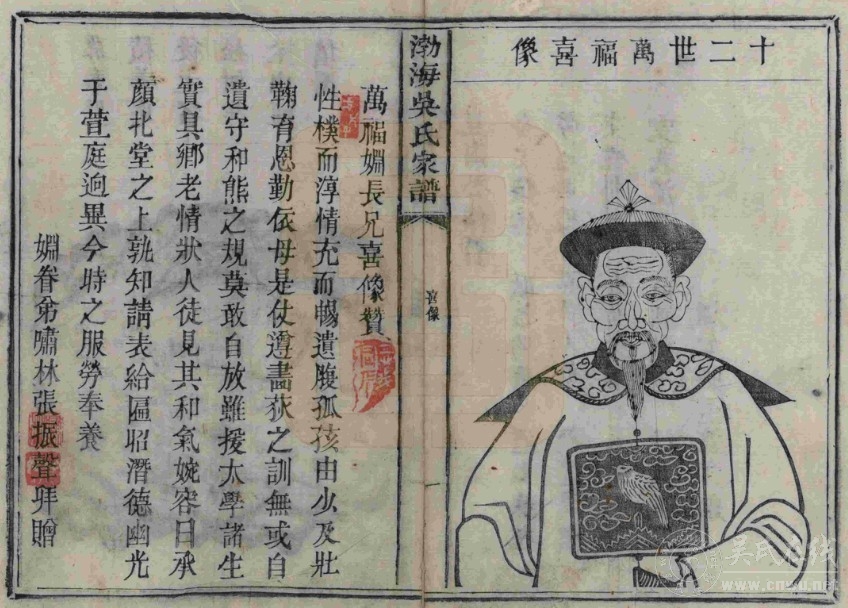 十二世萬福喜像
渤海吳氏家譜
喜像
萬福婣長兄喜像贊
性樸而淳情充而暢遺腹孤孩由少及壯
鞠育恩勤依母是仗遵畵荻之訓無或自
遺守和熊之規莫敢自放雖援太學諸生
實具鄉老情狀人徒見其和氣婉容日承
顔北堂之上孰知請表給匾昭潛德幽光
于萱庭逈異今時之服勞奉養
婣眷弟嘯林張振聲拜贈
吳氏在线
www.cnwu.net